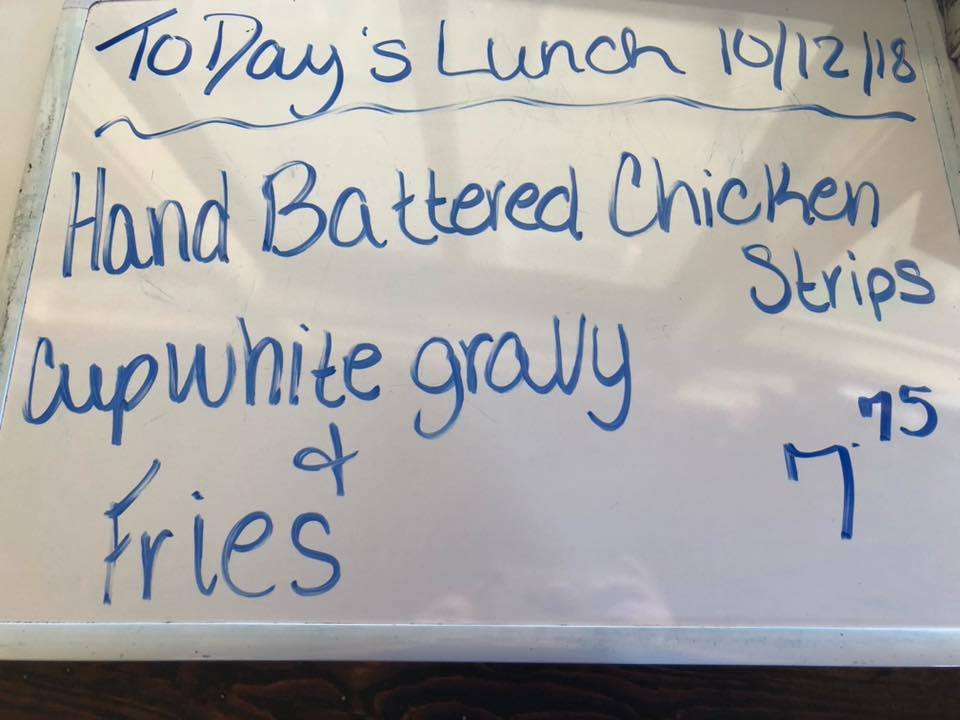 ToDay's Lunch 10/12/18
Hand Battered Chicken
Strips
Cup white gravy
&
Fries
7.75